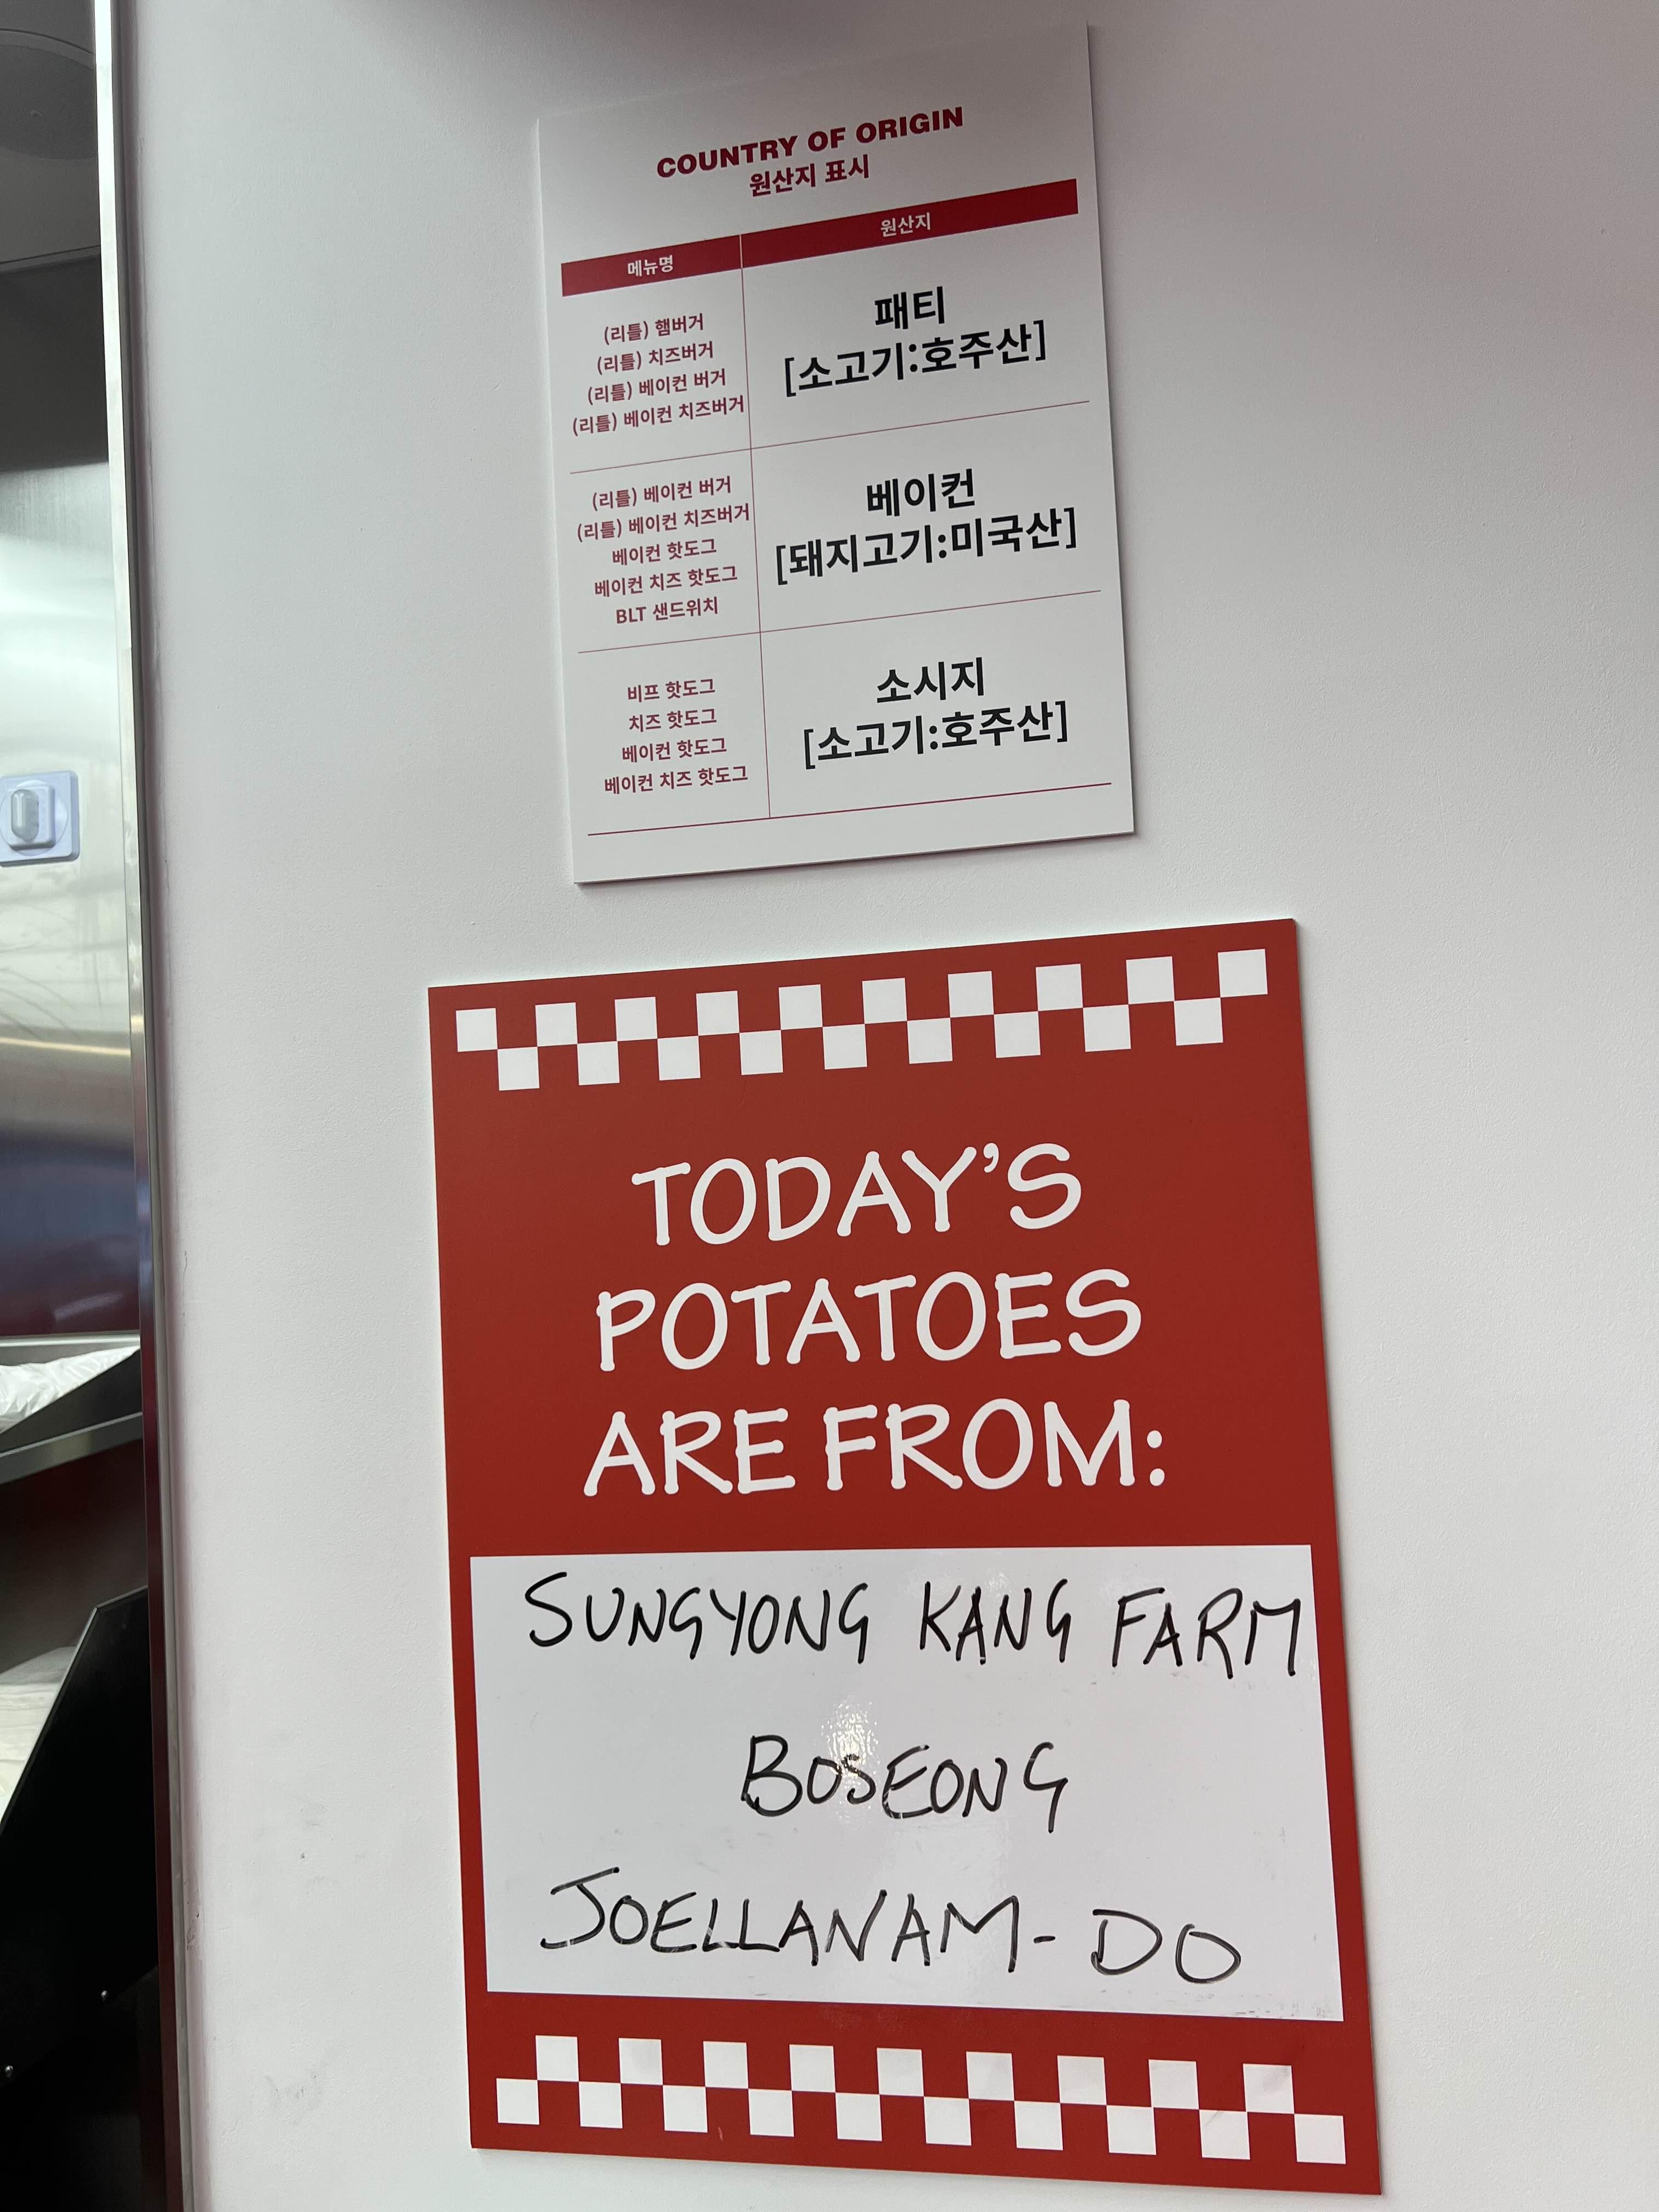 COUNTRY OF ORIGIN
원산지 표시
메뉴명
원산지
(리틀) 햄버거
(리틀) 치즈버거
(리틀) 베이컨 버거
(리틀) 베이컨 치즈버거
패티
[소고기:호주산]
(리틀) 베이컨 버거
(리틀) 베이컨 치즈버거
베이컨 핫도그
베이컨 치즈 핫도그
BLT 샌드위치
베이컨
[돼지고기:미국산]
비프 핫도그
치즈 핫도그
베이컨 핫도그
베이컨 치즈 핫도그
소시지
[소고기:호주산]
TODAY'S
POTATOES
ARE FROM:
SUNGYONG KANG FARM
BOSEONG
JOELLANAM-DO